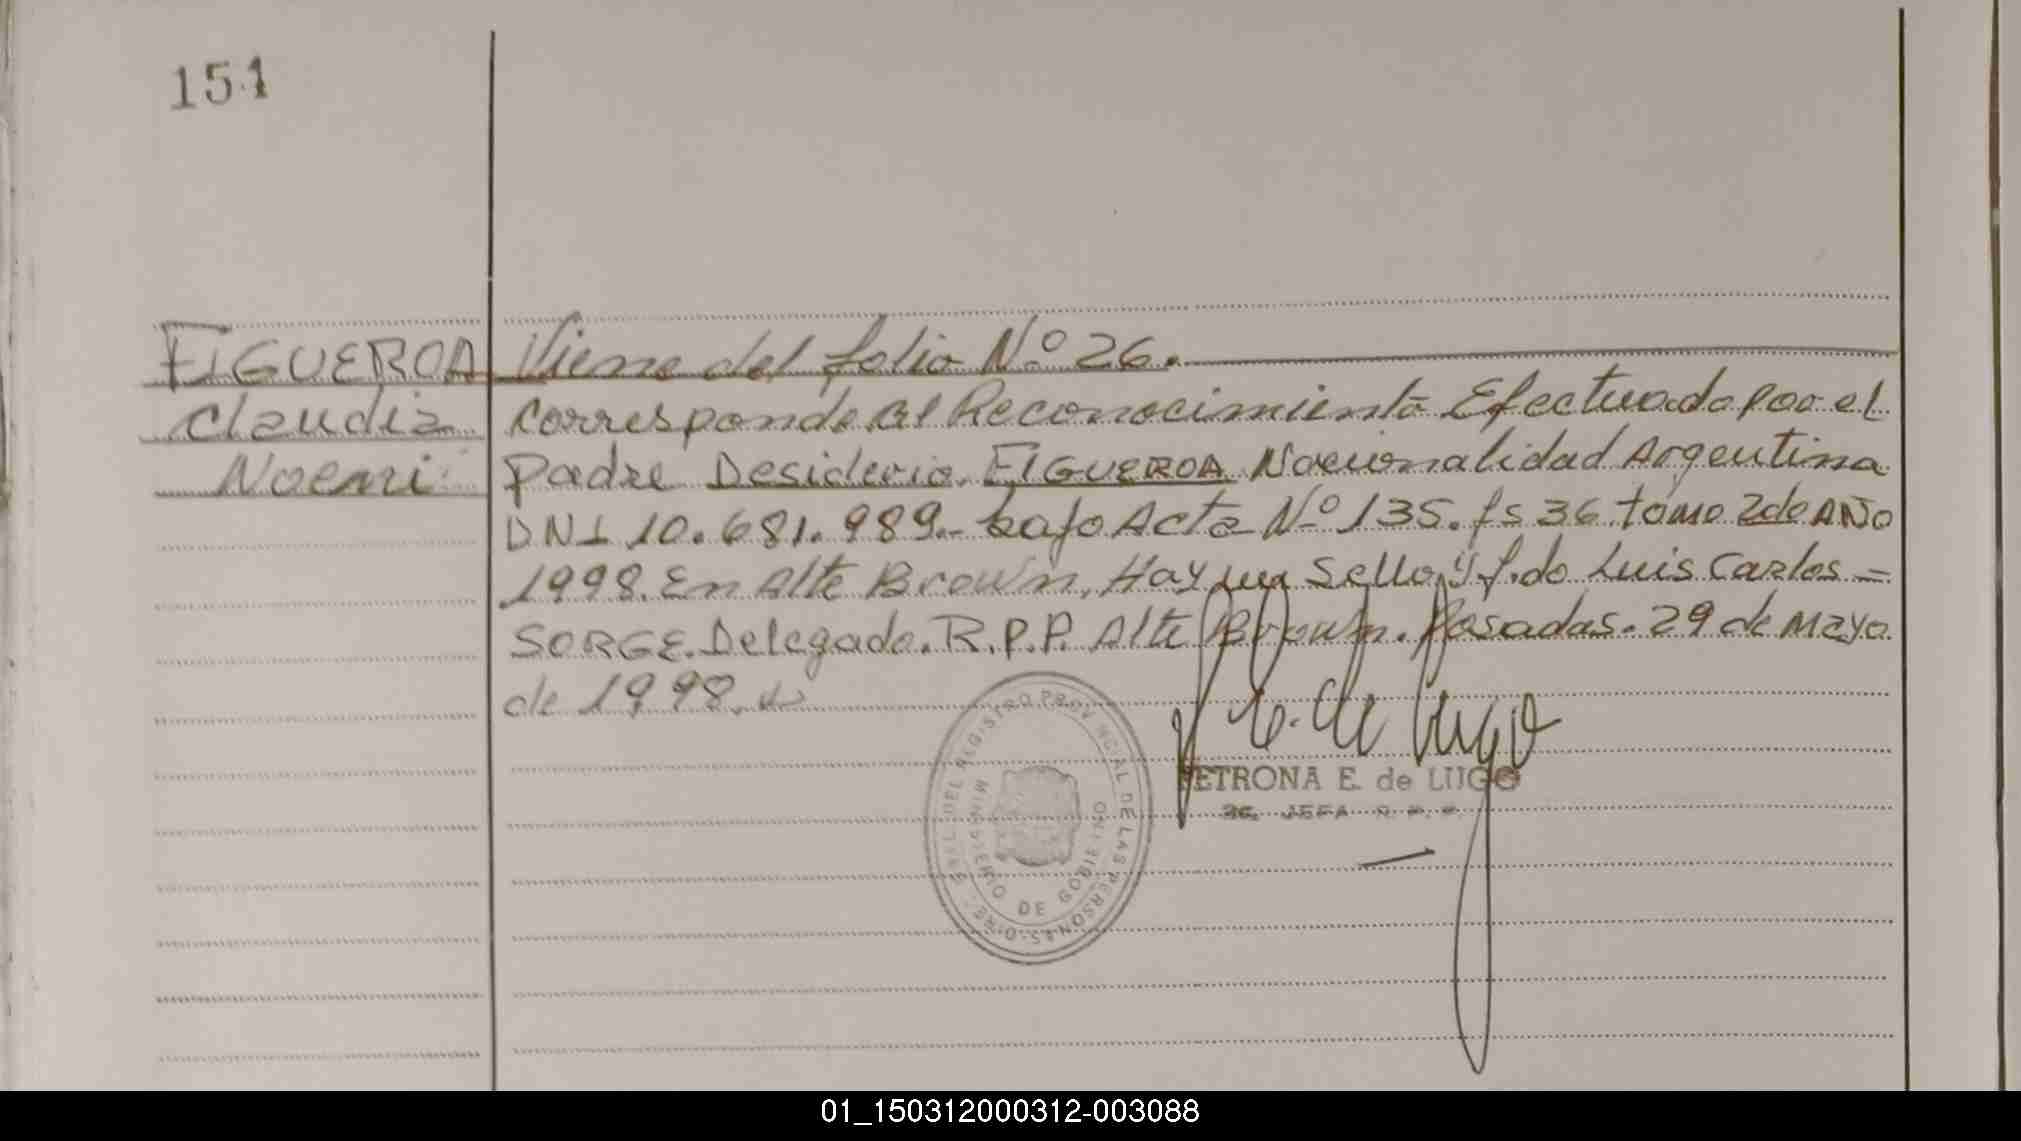 151
FIGUEROA
Claudia
Noemi
Viene del folio Nº 26.
Corresponde al Reconocimiento Efectuado por el
padre Desiderio FIGUEROA Nacionalidad Argentina
DNI 10.681.989.- bajo Acta Nº 135. fs 36 tomo 2do AÑO
1998. En Alte Brown, Hay un Sello y f.do Luis Carlos =
SORGE. Delegado. R.P.P. Alte Brown. Posadas. 29 de Mayo
de 1998.
DEL REGISTRO PROVINCIAL DE LAS PERSONAS
MINISTERIO DE GOBIERNO
E. de Lugo
PETRONA E. de LUGO
JEFA R. P. P.
01_150312000312-003088